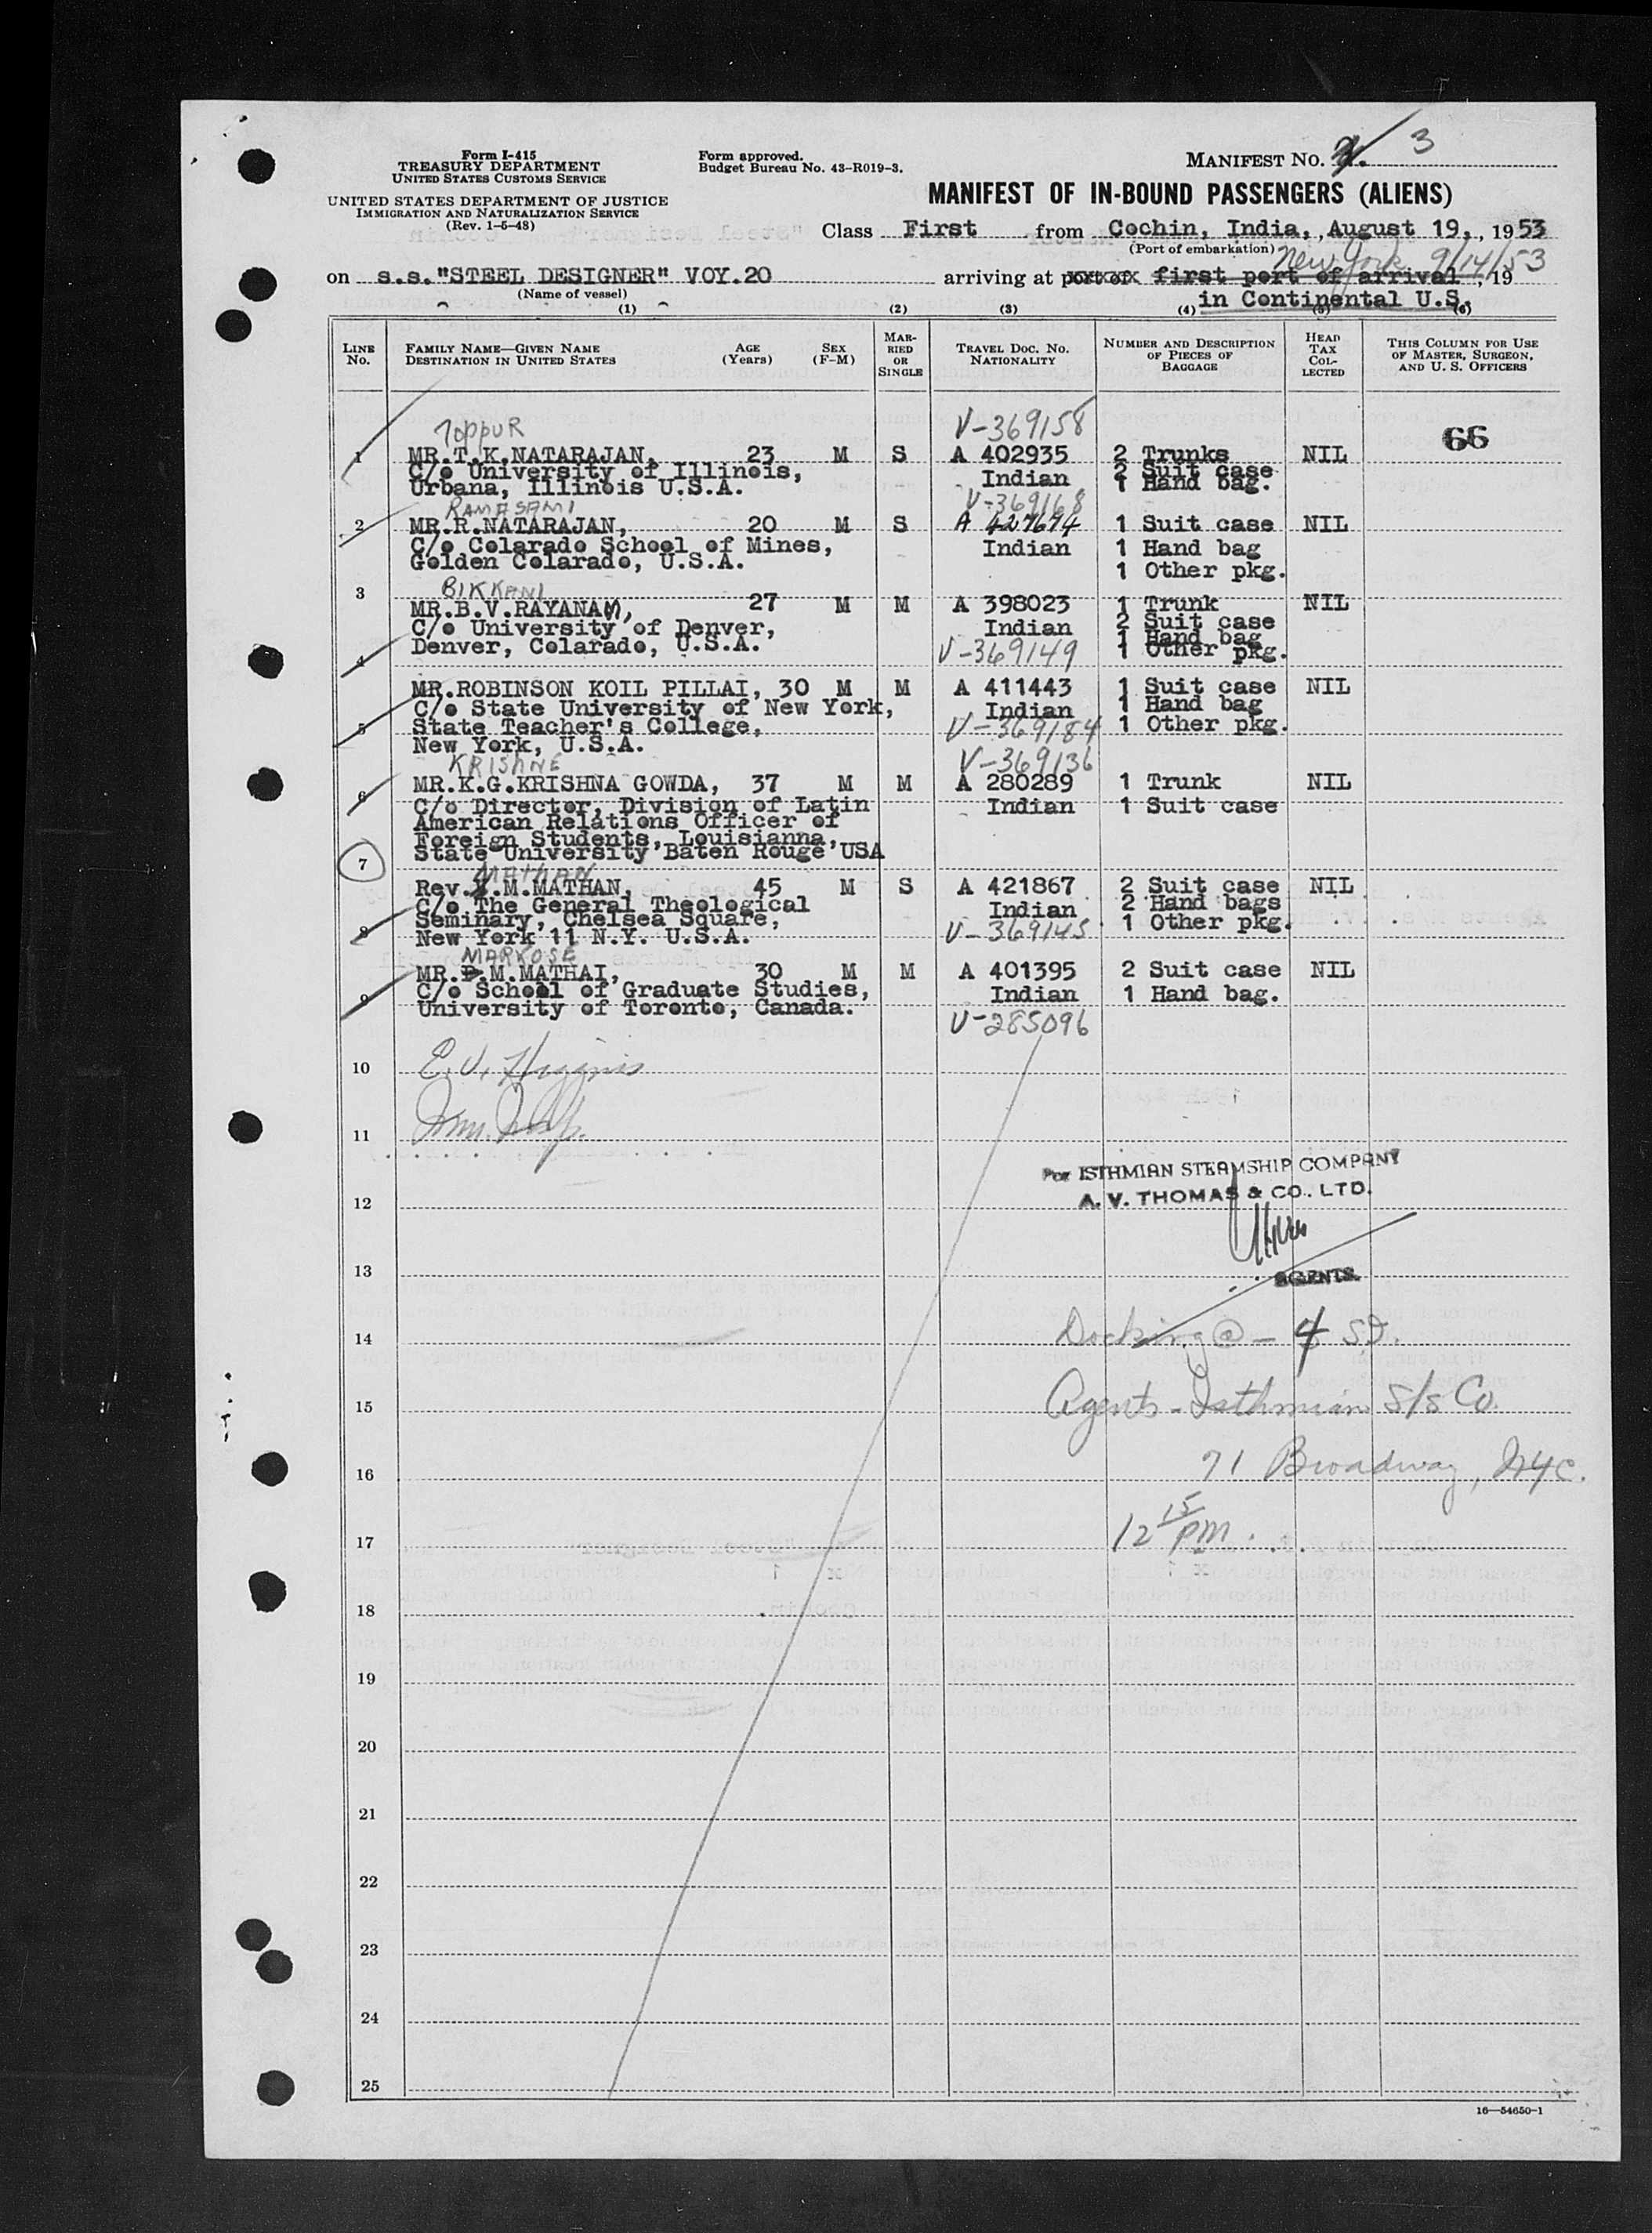 Form I-415
TREASURY DEPARTMENT
UNITED STATES CUSTOMS SERVICE
UNITED STATES DEPARTMENT OF JUSTICE
IMMIGRATION AND NATURALIZATION SERVICE
(Rev. 1-5-48)
Form approved.
Budget Bureau No. 43-R019-3.
MANIFEST NO. 3
MANIFEST OF IN-BOUND PASSENGERS (ALIENS)
Class First from Cochin, India, August 19, 1953
(Port of embarkation)
New York 9/14/53
on s.s. "STEEL DESIGNER" VOY.20 arriving at port of first port of arrival, 19
(Name of vessel)
in Continental U.S.
(1) (2) (3) (4) (5) (6)
LINE No. FAMILY NAME—GIVEN NAME DESTINATION IN UNITED STATES AGE (Years) SEX (F-M) MARRIED OR SINGLE TRAVEL DOC. NO. NATIONALITY NUMBER AND DESCRIPTION OF PIECES OF BAGGAGE HEAD TAX COLLECTED THIS COLUMN FOR USE OF MASTER, SURGEON, AND U. S. OFFICERS
TOPPUR V-369158
66
1 MR.T.K.NATARAJAN, 23 M S A 402935 2 Trunks NIL
C/o University of Illinois, Indian 2 Suit case
Urbana, Illinois U.S.A. 1 Hand bag.
RAMASAMI V-369168
2 MR.R.NATARAJAN, 20 M S A 427674 1 Suit case NIL
C/o Colarado School of Mines, Indian 1 Hand bag
Golden Colarado, U.S.A. 1 Other pkg.
3 BIKKANI
MR.B.V.RAYANAM, 27 M M A 398023 1 Trunk NIL
C/o University of Denver, Indian 2 Suit case
1 Hand bag
4 Denver, Colarado, U.S.A. V-369149 1 Other pkg.
MR.ROBINSON KOIL PILLAI, 30 M M A 411443 1 Suit case NIL
C/o State University of New York, Indian 1 Hand bag
5 State Teacher's College, V-369184 1 Other pkg.
New York, U.S.A.
KRISHNE V-369136
MR.K.G.KRISHNA GOWDA, 37 M M A 280289 1 Trunk NIL
6 C/o Director, Division of Latin Indian 1 Suit case
American Relations Officer of
Foreign Students, Louisianna,
State University Baten Rouge USA
7
MATHAN
Rev. .M.MATHAN, 45 M S A 421867 2 Suit case NIL
C/o The General Theological Indian 2 Hand bags
Seminary, Chelsea Square, 1 Other pkg.
8 New York 11 N.Y. U.S.A. V-369145
MARKOSE
MR.P.M.MATHAI, 30 M M A 401395 2 Suit case NIL
9 C/o School of Graduate Studies, Indian 1 Hand bag.
University of Toronto, Canada.
V-285096
10 E.J. Higgins
11
For ISTHMIAN STEAMSHIP COMPANY
12 A. V. THOMAS & CO., LTD.
13 AGENTS.
14 Docking @ - 4 St.
15 Agents - Isthmian S/S Co.
16 71 Broadway, NYC.
17 12 15 PM.
18
19
20
21
22
23
24
25
16—54650-1